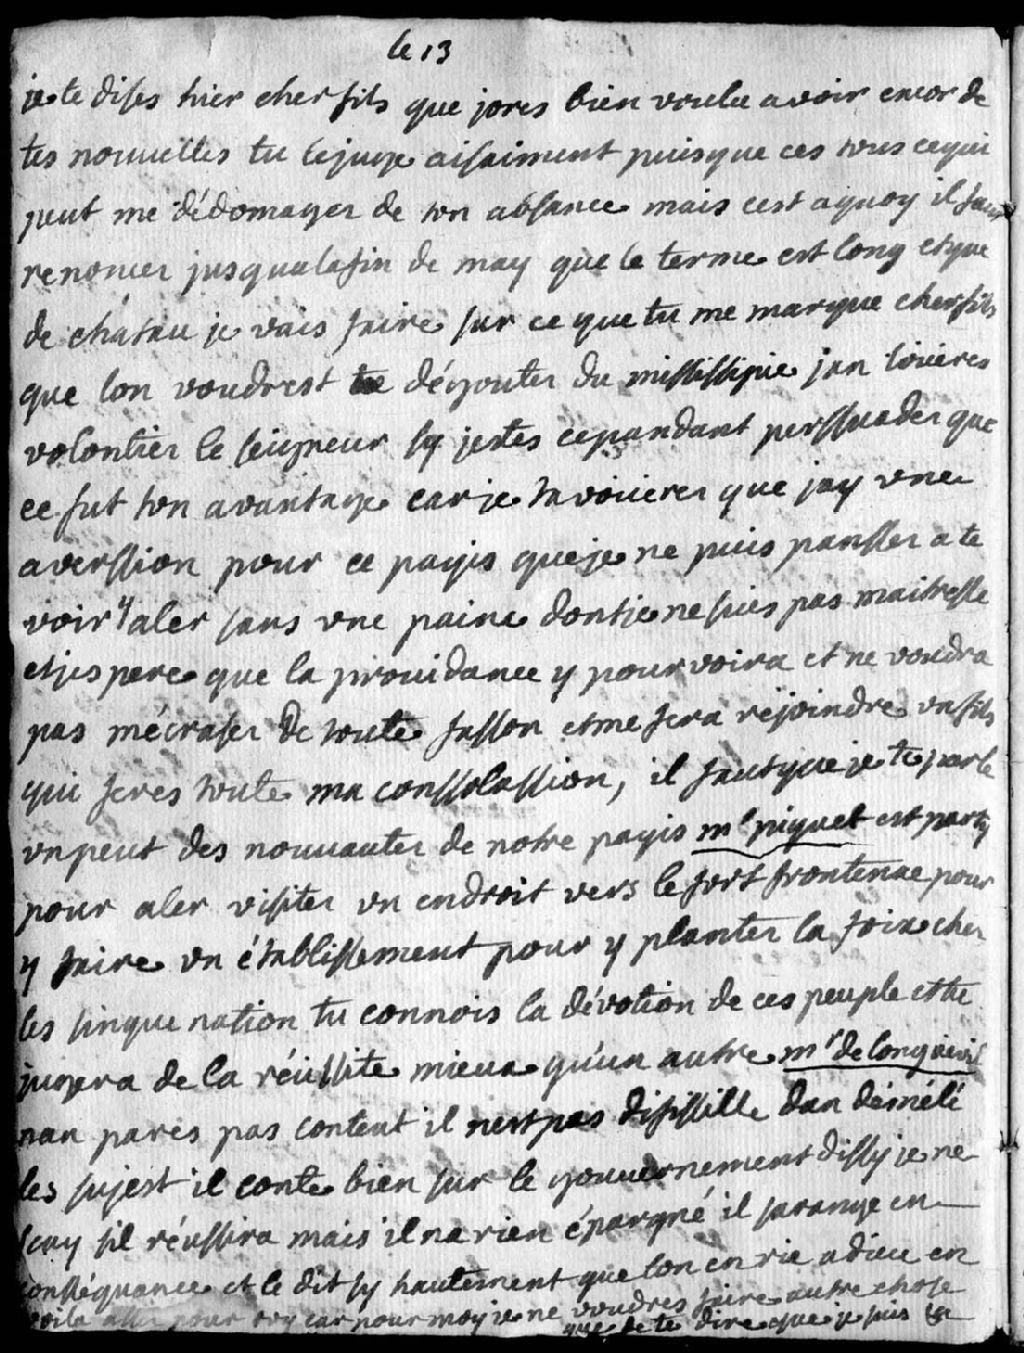 le 13
je te disés hier cher fils que jorés bien voulu avoir encor de
tes nouuelles tu le juge aisaiment puisque ces tous ce qui
peut me dédomager de ton absance mais cest a quoy il faut
renoncer jusqualafin de may que le terme est long et que
de chateau je vais faire sur ce que tu me marque cher fils
que lon voudrest te dégouter du missisipie jan louieres
volontier le seigneur sy jestes cepandant perssuader que
ce fut ton avantage car je tavoueres que jay vne
averssion pour ce payis que je ne puis pansser a te
voir y aler sans vne paine dont je ne suis pas maitresse
et jespere que la prouidance y pourvoira et ne voudra
pas mécraser de toute fasson et me fera réjoindre vn fils
qui feres toute ma conssolassion, il faut que je te parle
vn peut des nouuautes de notre payis mr piquet est party
pour aler visiter vn endroit vers le fort frontenac pour
y faire vn établissement pour y planter la foix cher
les sinque nation tu connois la dévotion de ces peuple et tu
jugera de la réussite mieux qu'un autre mr de longueuil
nan pares pas content il nest pas dissisille dan démélé
les sujest il conte bien sur le gouuernement dissy je ne
scay sil réussira mais il na rien épargné il sarange en
consséquance et le dit sy hautement que lon en rie adieu en
voila assé pour car pour moy je ne voudres faire autre chose
que de te dire que je suis